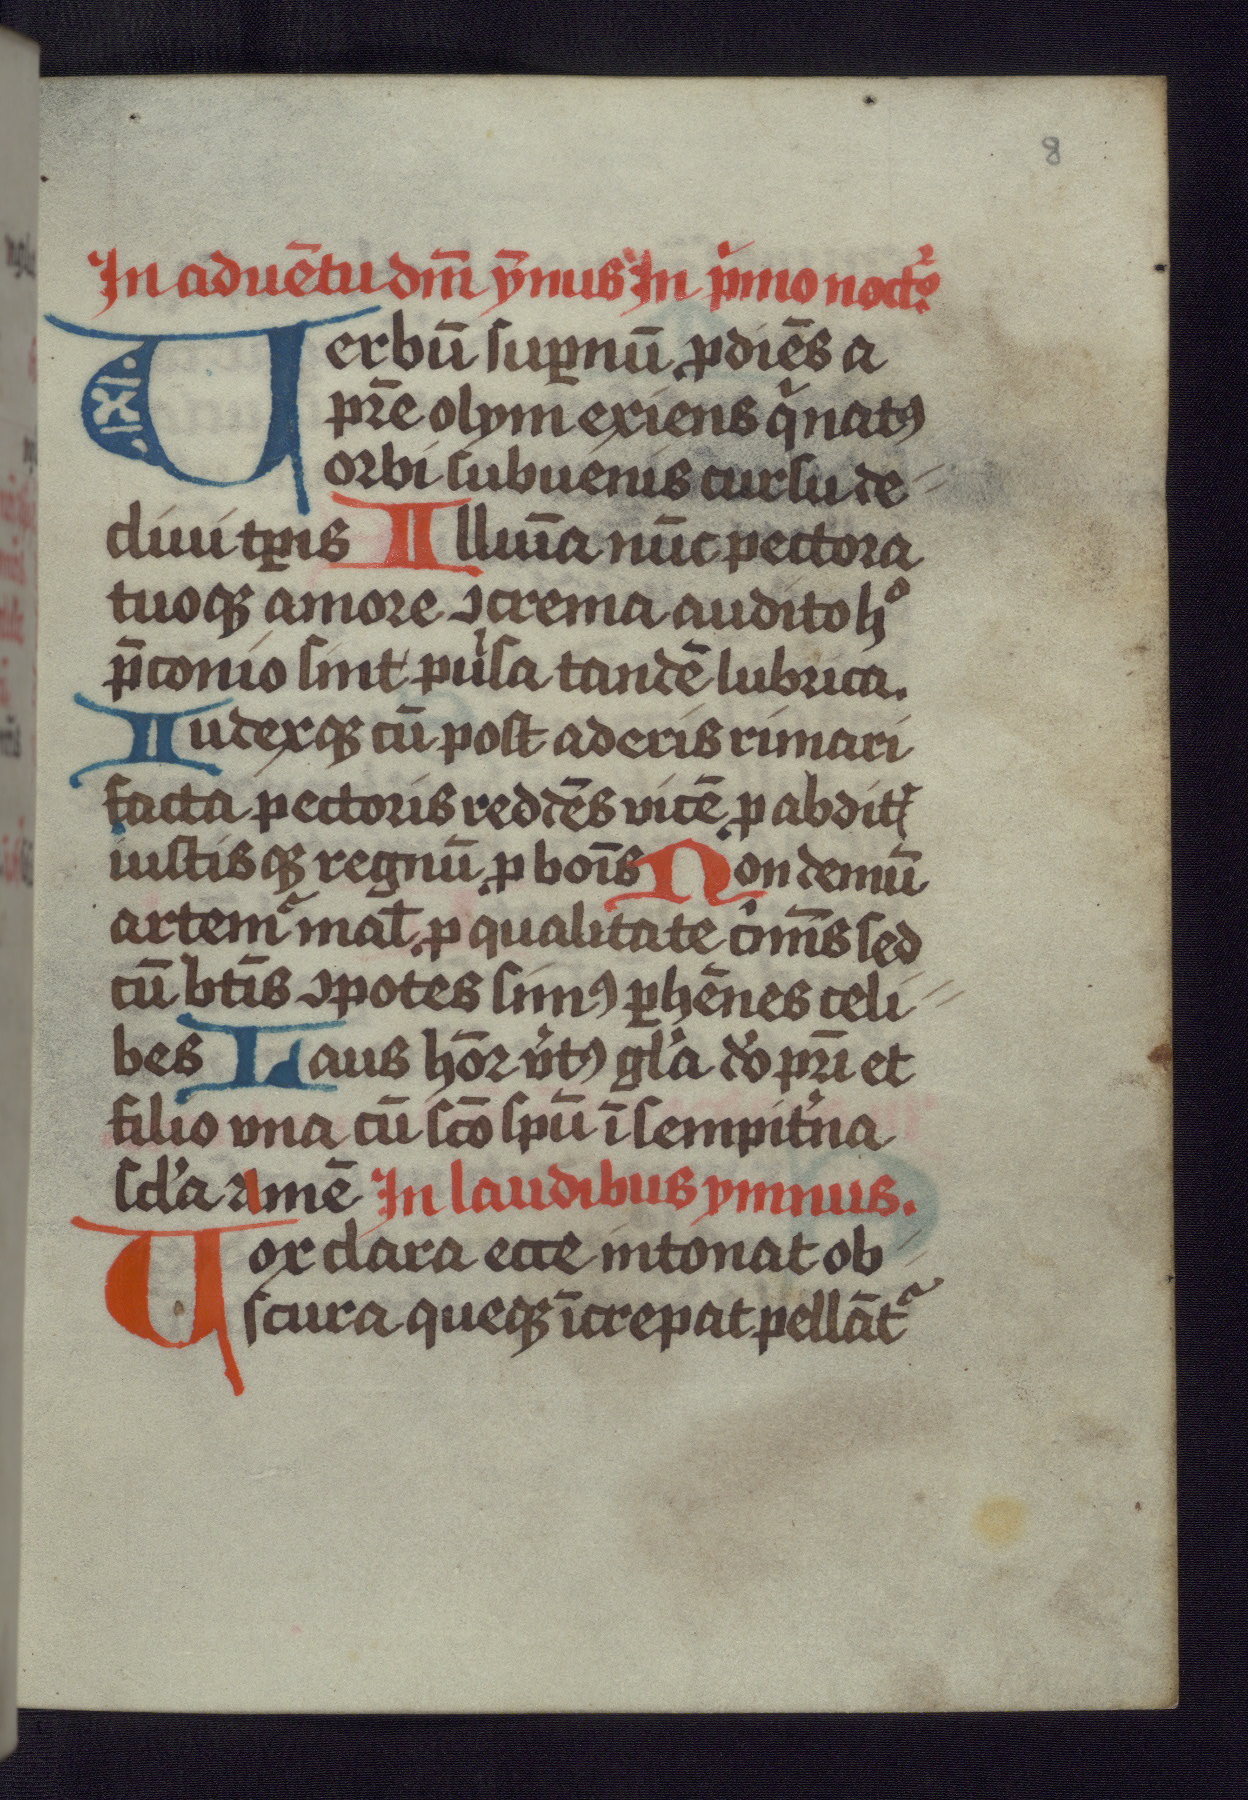 8
In aduētu dm̄ ẏmnus In pͥmo noctͦ
Uerbū suꝑnū ꝓdiēs a
pr̄e olym exiens qͥ natꝰ
orbi subuenis cursu de
cliui tꝑis Illuīa nūc pectora
tuoqꝫ amore ꝯcrema audito hͦ
p̄conio sint pulsa tandē lubrica.
Iudexqꝫ cū post aderis rimari
facta pectoris reddēs vicē ꝓ abditꝭ
iustisqꝫ regnū ꝓ boīs Non demū
artemͬ mał ꝓ qualitate cͥmīs sed
cū btīs ꝯpotes simꝰ ꝑhēnes celi
bes Laus hōr vͥtꝰ gl'a do pr̄i et
filio vna cū sc̄o spū ī sempit'na
scl'a amē In laudibus ymnus.
Uox clara ecce intonat ob
scura queqꝫ īcrepat pellātͬ